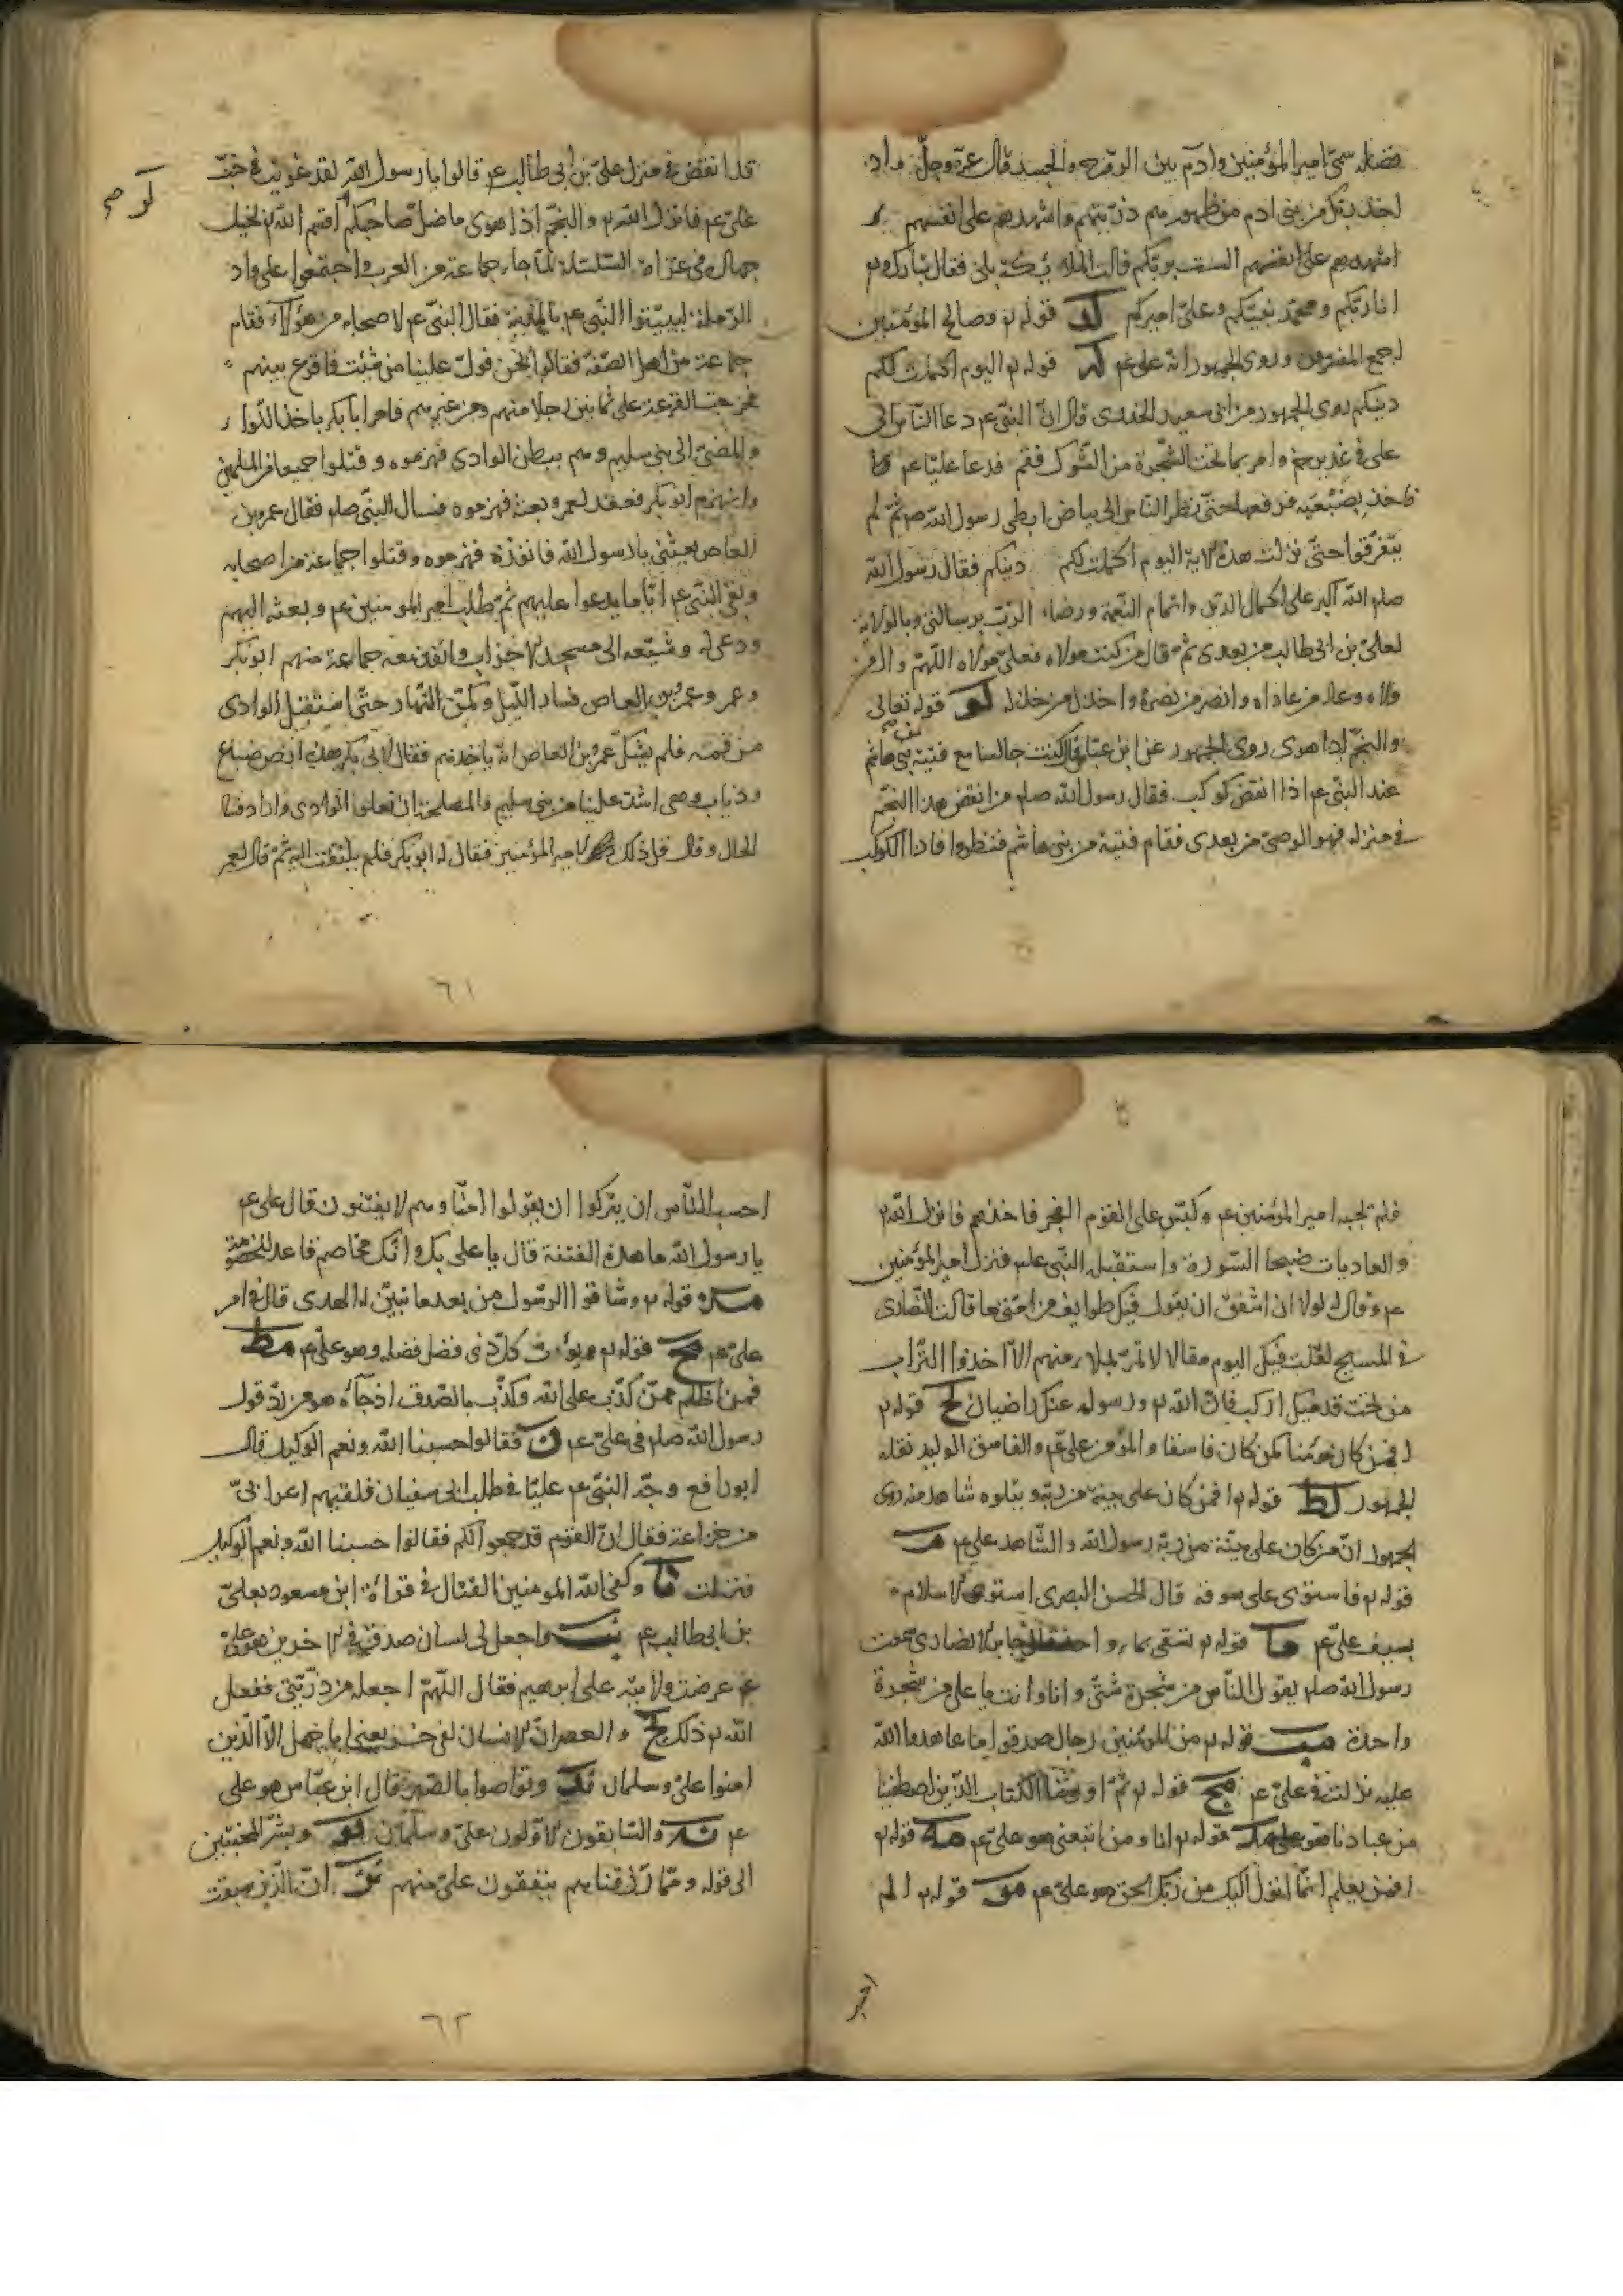 فضله سمّى امير المؤمنين وادم بين الروح والجسد قال عزّ وجلّ واذ
اخذ ربّك من بنى ادم من ظهورهم ذرّيتهم واشهدهم على انفسهم
اشهدهم على انفسهم الست بربّكم قالت الملائكة بلى فقال تبارك و
انا ربّكم ومحمّد نبيّكم وعلىّ اميركم لد قوله وصالح المؤمنين
اجمع المفسرون وروى الجمهور انّه علىّ عم له قوله اليوم اكملت لكم
دينكم روى الجمهور عن ابى سعيد الخدرى قال انّ النبىّ عم دعا النّاس الى
على فى غدير خم وامر بما تحت الشّجرة من الشّوك فقم فدعا عليّا عم
فاخذ بضبعيه فرفعهما حتّى نظر النّاس الى بياض ابطى رسول الله صم ثمّ لم
يتفرّقوا حتّى نزلت هذه الاية اليوم اكملت لكم دينكم فقال رسول الله
صلم الله اكبر على اكمال الدّين واتمام النّعمة ورضاء الرّبّ برسالتى وبالولاية
لعلىّ بن ابى طالب من بعدى ثمّ قال من كنت مولاه فعلىّ مولاه اللهمّ وال من
والاه وعاد من عاداه وانصر من نصره واخذل من خذله لو قوله تعالى
والنّجم اذا هوى روى الجمهور عن ابن عبّاس قال كنت جالسا مع فتية من بنى هاشم
عند النبىّ عم اذا انقض كوكب فقال رسول الله صلم من انقض هذا النّجم
فى منزله فهو الوصىّ من بعدى فقام فتية من بنى هاشم فنظروا فاذا الكوكب
قد انقض فى منزل علىّ بن ابى طالب عم قالوا يا رسول الله لقد غويت فى حبّ
علىّ عم فانزل الله والنّجم اذا هوى ما ضلّ صاحبكم اقسم الله بخيل
جهاله فى غزاة السّلسلة لمّا جاء جماعة من العرب واجتمعوا على واد
الرّملة ليبيّتوا النّبى عم بالمدينة فقال النبىّ عم لاصحابه من هؤلاء فقام
جماعة من اهل الصّفّة فقالوا نحن فولّ علينا من شئت فاقرع بينهم
فخرجت القرعة على ثمانين رجلا منهم ومن غيرهم فامر ابا بكر باخذ اللّواء
والمضىّ الى بنى سليم وهم ببطن الوادى فهزموه وقتلوا جميعا من المسلمين
وانهزم ابو بكر فعقد لعمر وبعثه فهزموه فسال النّبى صلم فقال عمرو بن
العاص ابعثنى يا رسول الله فانفذه فهزموه وقتلوا جماعة من اصحابه
وبقى النّبى عم ايّاما يدعوا عليهم ثمّ طلب امير المومنين عم وبعثه اليهم
ودعى له وشيّعه الى مسجد الاحزاب وانفذ معه جماعة منهم ابو بكر
وعمر وعمرو بن العاص فسار اللّيل وكمن النّهار حتّى استقبل الوادى
من فمه فلم يشكّ عمرو بن العاص انّه ياخذهم فقال لابى بكر هذه ارض ضباع
وذياب وهى اشدّ علينا من بنى سليم والمصلحة ان نعلوا الوادى واراد فساد
الحال وقال قل ذلك لامير المؤمنين فقال له ابو بكر فلم يلتفت اليه ثمّ قال لعمر
٦١
فلم تجبه امير المؤمنين عم وكبّس على القوم الفجر فاخذهم فانزل الله
والعاديات ضبحا السّورة واستقبله النّبى عم فنزل امير المؤمنين
عم وقال له لولا ان اشفق ان يقول فيك طوايف من امّتى ما قالت النّصارى
فى المسيح لقلت فيك اليوم مقالا لا تمرّ بملاء منهم الاّ اخذوا التّراب
من تحت قدميك اركب فانّ الله ورسوله عنك راضيان لح قوله
افمن كان مؤمنا كمن كان فاسقا والمؤمن علىّ عم والفاسق الوليد نقله
الجمهور لط قوله افمن كان على بيّنة من ربّه ويتلوه شاهد منه روى
الجمهور انّ من كان على بيّنة من ربّه رسول الله والشّاهد علىّ عم م
قوله فاستوى على سوقه قال الحسن البصرى استوى الاسلام
بسيف علىّ عم ما قوله تسقى بماء واحد قال جابر الانصارى سمعت
رسول الله صلم يقول النّاس من شجرة شتّى وانا وانت يا على من شجرة
واحدة مب قوله من المؤمنين رجال صدقوا ما عاهدوا الله
عليه نزلت فى علىّ عم مج قوله ثمّ اورثنا الكتاب الّذين اصطفينا
من عبادنا هو علىّ مد قوله انا ومن اتبعنى هو علىّ عم مه قوله
افمن يعلم انّما انزل اليك من ربّك الحق هو علىّ عم مو قوله الم
احسب النّاس ان يتركوا ان يقولوا امنّا وهم لا يفتنون قال على عم
يا رسول الله ما هذه الفتنة قال يا على بك وانّك مخاصم فاعد للخصومة
مز قوله وشاقوا الرّسول من بعد ما تبيّن له الهدى قال فى امر
علىّ عم مح قوله ويؤت كلّ ذى فضل فضله وهو علىّ عم مط
فمن اظلم ممّن كذّب على الله وكذّب بالصّدق اذ جآءه هو من ردّ قول
رسول الله صلم فى علىّ عم ن فقالوا حسبنا الله ونعم الوكيل قال
ابو رافع وجّه النّبى عم عليّا فى طلب ابى سفيان فلقيهم اعرابىّ
من خزاعة فقال انّ القوم قد جمعوا لكم فقالوا حسبنا الله ونعم الوكيل
فنزلت نا وكفى الله المومنين القتال فى قراءة ابن مسعود بعلىّ
بن ابى طالب عم نب واجعل لى لسان صدق فى الاخرين هو علىّ
عم عرضت ولايته على ابرهيم فقال اللّهمّ اجعله من ذرّيّتى ففعل
الله ذلك نج والعصر انّ الانسان لفى خسر يعنى ابا جهل الاّ الّذين
امنوا علىّ وسلمان ند وتواصوا بالصّبر قال ابن عبّاس هو على
عم نه والسّابقون الاوّلون علىّ وسلمان نو وبشّر المخبتين
الى قوله وممّا رزقناهم ينفقون علىّ منهم نز انّ الّذين سبقت
٦٢